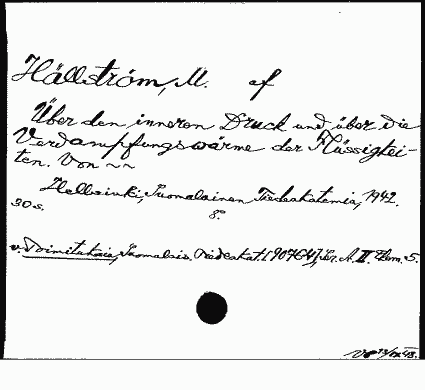 Hällström, M. af
Über den inneren Druck und über die
Verdampfungswärme der Flüssigkei-
ten. Von ~~
Helsinki, Suomalainen Tiedeakatemia, 1942.
30 s. 8.
v. Toimituksia, Suomalais. Tiedeakat. Ser. A. II Chem. 5.